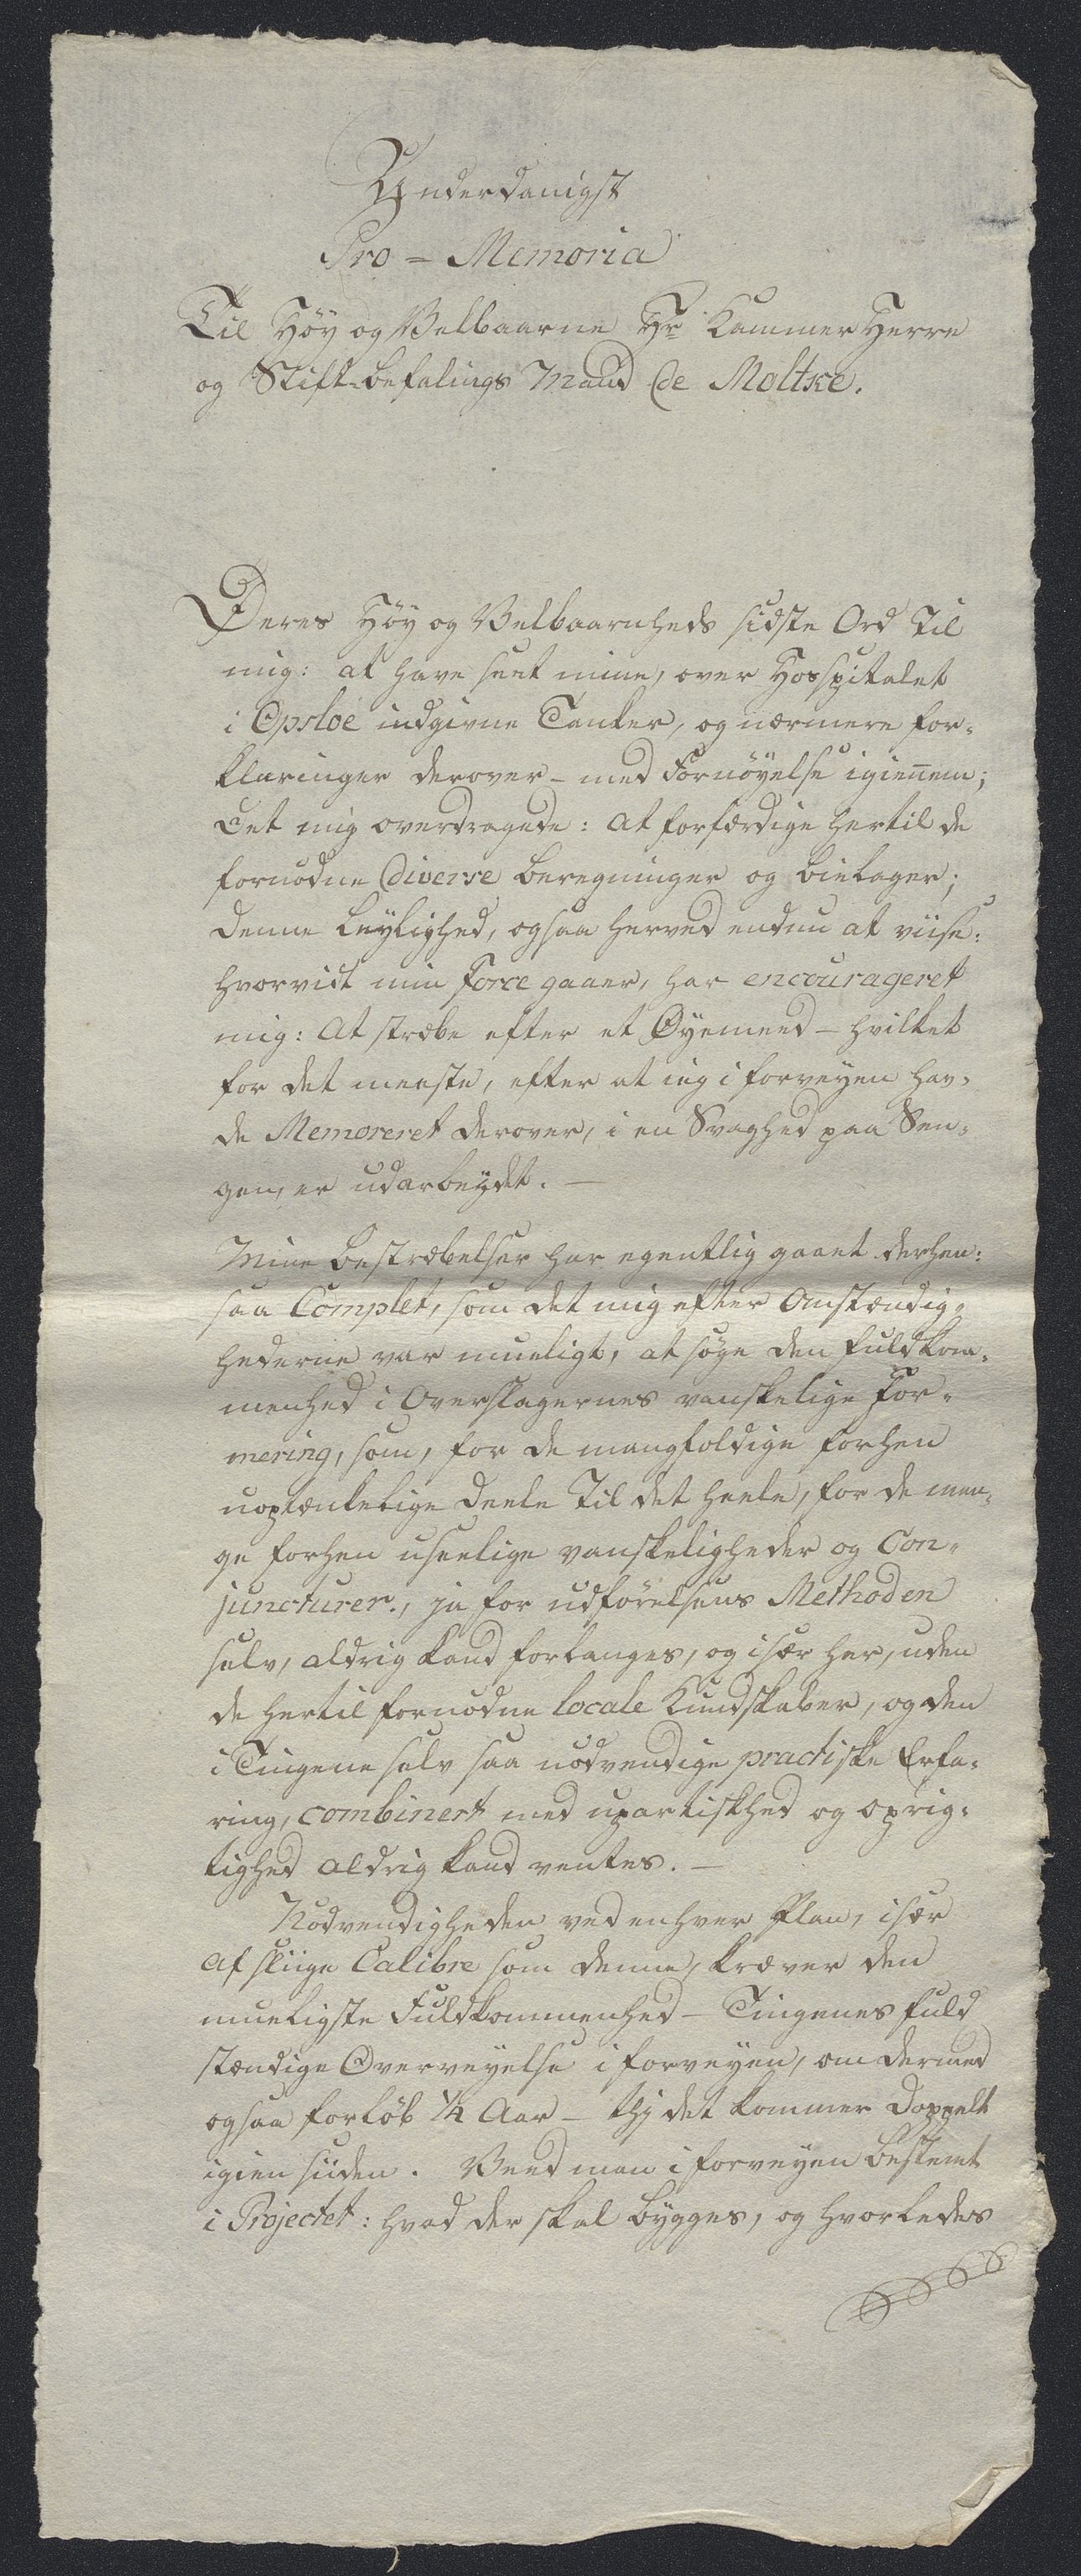 Underdanigst
Pro - Memoria
Til Høy og Velbaarne Hr Kammer Herre
og Stift-befalings Mand de Moltke.
Deres Høy og Velbaarnheds sidste Ord til
mig: at have seet mine, over Hosspitalet
i Opsloe indgivne Tanker, og nærmere for-
klaringer derover - med Fornøyelse igienem;
Det mig overdragede: at forfærdige hertil de
fornødne diverse beregninger og bielager;
denne leylighed, ogsaa herved endnu at viise:
hvorvidt min Force gaaer, har encourageret
mig: At stræbe efter et Øyemeed - hvilket
for det meeste, efter at ieg i forveyen hav-
de Memoreret derover, i en Svaghed paa Sen-
gen, er udarbeydet. -
Mine bestræbelser har egentlig gaaet derhen:
saa Complet, som det mig efter Omstændig-
hederne var mueligt, at søge den fuldkom-
menhed i Overslagernes vanskelige For-
mering, som, for de mangfoldige forhen
uoptænkelige deele til det heele, for de man-
ge forhen useelige vanskeligheder og Con-
juncturer, ja for udførelsens Methoden
selv, aldrig kand forlanges, og især her, uden
de hertil fornødne locale Kundskaber, og den
i Tingene selv saa nødvendige practiske Erfa-
ring, combinert med upartiskhed og oprig-
tighed aldrig kand ventes. -
Nødvendigheden ved enhver Plan, især
af sliige Calibre som denne, kræver den
mueligste Fuldkommenhed - Tingenes fuld
stændige Overveyelse i forveyen, om dermed
ogsaa forløb 1/4 Aar - thi det kommer doppelt
igien siiden. Veed man i forveyen bestemt
i Projectet: hvad der skal bygges, og hvorledes